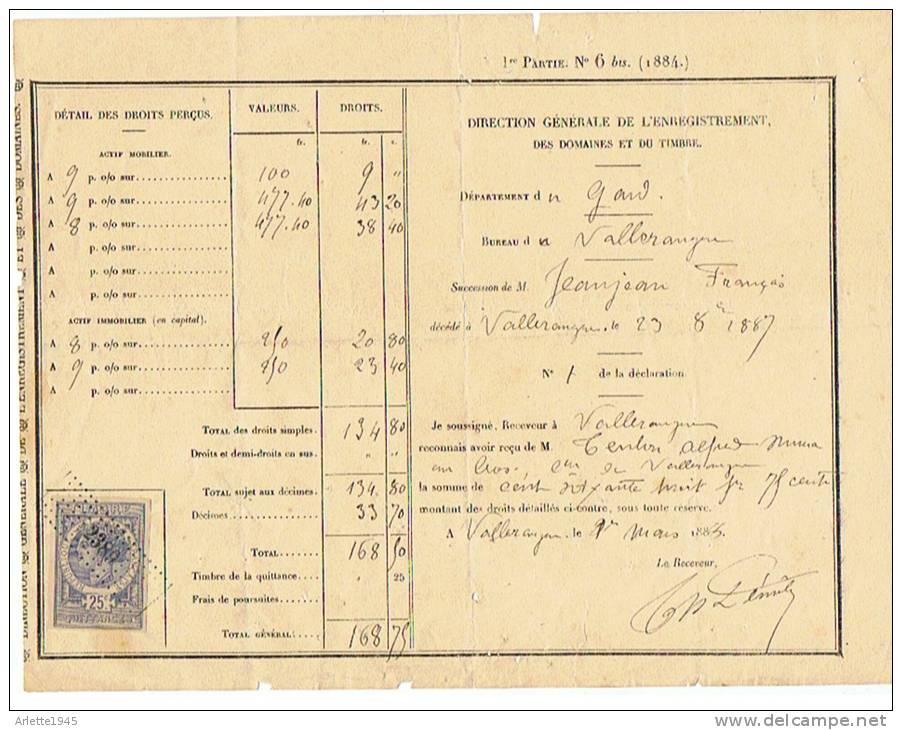 1re PARTIE. No 6 bis. (1884.)
DIRECTION GÉNÉRALE DE L'ENREGISTREMENT ET DES DOMAINES.
DÉTAIL DES DROITS PERÇUS. VALEURS. DROITS.
fr. fr. c.
ACTIF MOBILIER.
A 9 p. o/o sur 100 9 "
A 9 p. o/o sur 477.40 43 20
A 8 p. o/o sur 477.40 38 40
A p. o/o sur
A p. o/o sur
A p. o/o sur
ACTIF IMMOBILIER (en capital).
A 8 p. o/o sur 250 20 80
A 9 p. o/o sur 250 23 40
A p. o/o sur
TOTAL des droits simples. 134 80
Droits et demi-droits en sus. " "
TOTAL sujet aux décimes. 134. 80
Décimes 33 70
TOTAL 168 50
Timbre de la quittance. " 25
Frais de poursuites
TOTAL GÉNÉRAL 168 75
25c
DIRECTION GÉNÉRALE DE L'ENREGISTREMENT,
DES DOMAINES ET DU TIMBRE.
DÉPARTEMENT du Gard.
BUREAU de Valleraugue
Succession de M. Jeanjean François
décédé à Valleraugue le 23 8bre 1887
No 1 de la déclaration.
Je soussigné, Receveur à Valleraugue
reconnais avoir reçu de M. Teulon alfred
de Valleraugue
la somme de cent soixante huit fr 75 cent
montant des droits détaillés ci-contre, sous toute réserve.
A Valleraugue le 1er mars 188
Le Receveur,
Arlette1945
http://www.delcampe.net